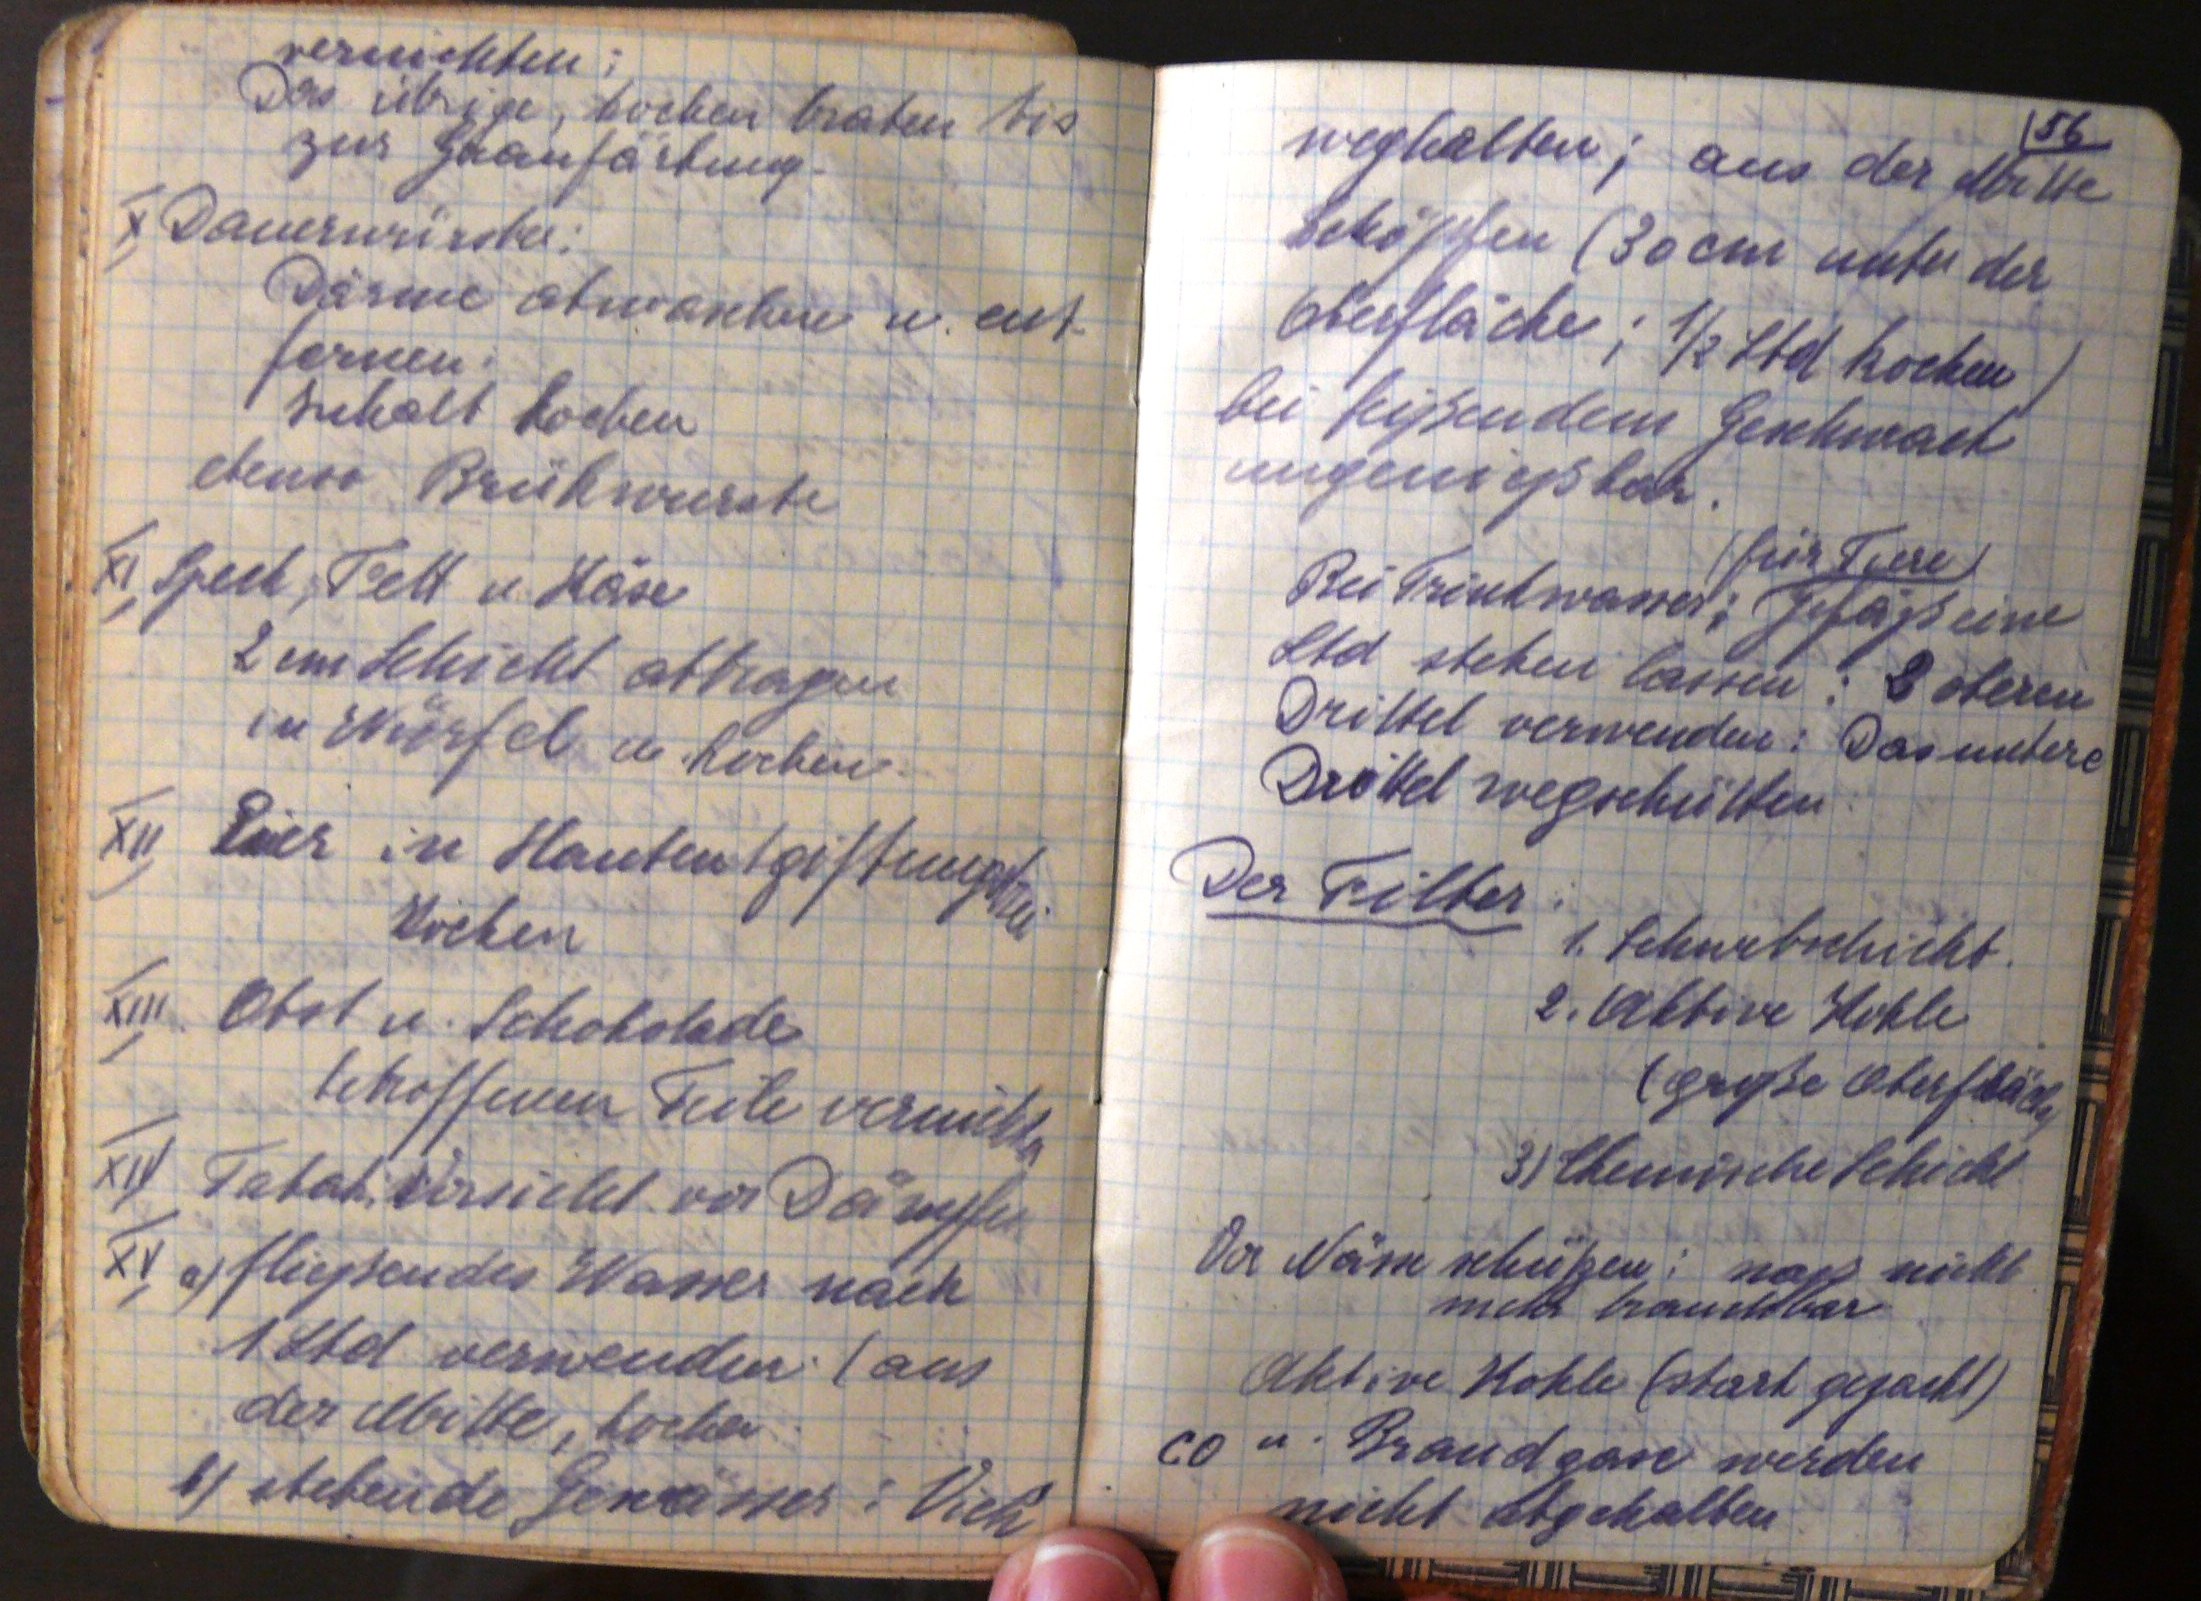 vernichten;
Das übrige, kochen braten bis
zur Graufärbung.
X Dauerwürste:
Därme abwaschen u. ent-
fernen.
Inhalt kochen
ebenso Brühwurste
XI Speck, Fett u. Käse
2 cm Schicht abtragen
in Würfel u. kochen.
XII Eier in Hautentgiftungsbrei
Kochen
XIII. Obst u. Schokolade
betroffenen Teile vernichten
XIV Tabak: Vorsicht vor Dämpfen
XV a) fließendes Wasser nach
1 Std verwenden (aus
der Mitte, kochen
b) stehende Gewässer: Vieh
156
weghalten; aus der Mitte
schöpfen (30 cm unter der
Oberfläche; 1/2 Std kochen)
bei beißendem Geschmack
ungenießbar.
(für Tiere)
Bei Trinkwasser; Gefäß eine
Std stehen lassen: 2 oberen
Drittel verwenden: Das untere
Drittel wegschütten
Der Filter:
1. Schwebschicht.
2. Aktive Kohle
(große Oberfläche)
3) Chemische Schicht
Vor Näse schützen: nass nicht
mehr brauchbar
Aktive Kohle (stark gezackt)
CO u. Brandgase werden
nicht abgehalten